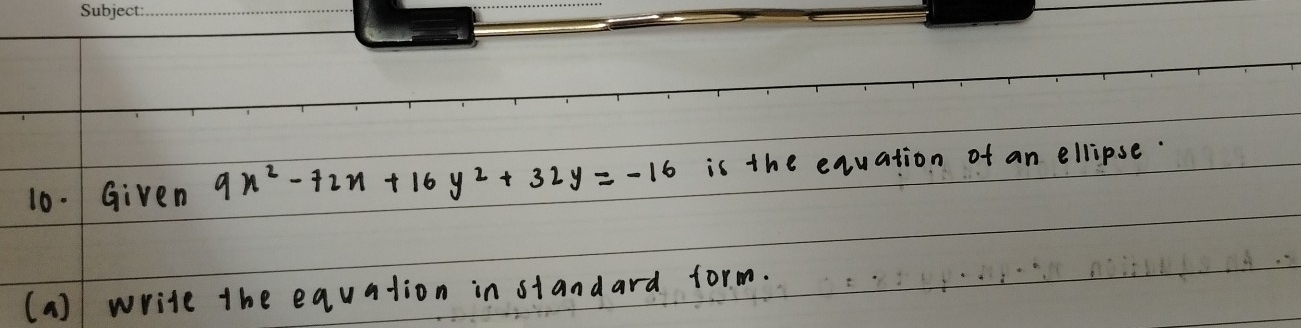 Subject:
10. Given 9x² - 72x + 16y² + 32y = -16 is the equation of an ellipse.
(a) write the equation in standard form.